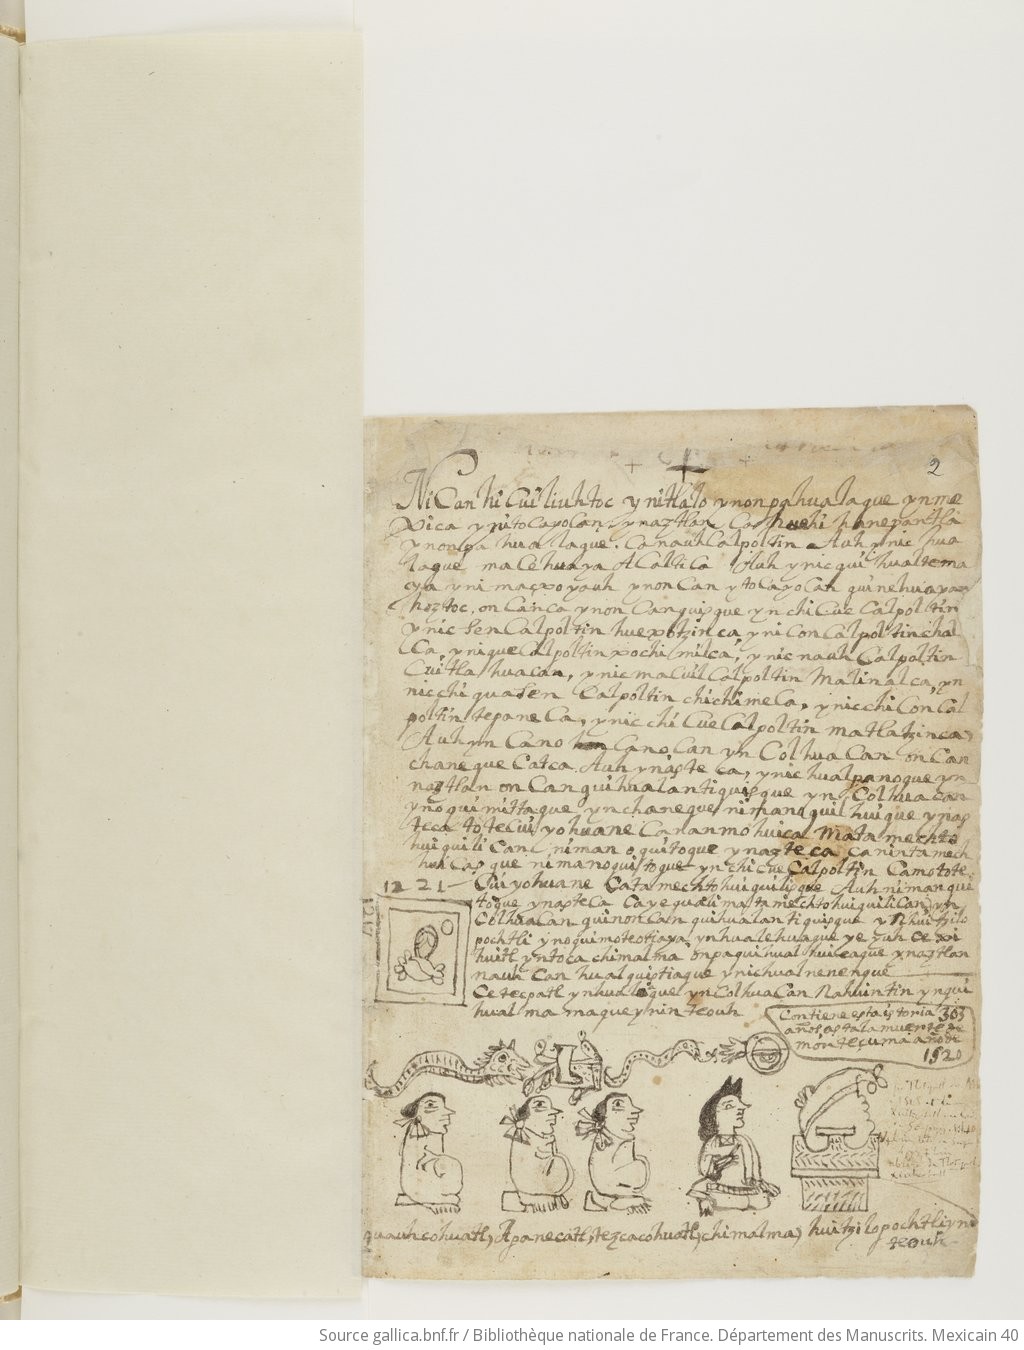 2
Ni Can hi Cuiliuhtoc y nitlàlo ynonpahualaque ynme
xica ynitocayocan ynaztlan Ca huehi hanepantla
ynonpa hualaque. Canauh Calpoltin Auh ynic hua
laque malehuaya ACaltiCa Auh ynicqui hualtema
ya yni macxoyauh ynon Can ytoCayoCan quinehuayan
hoztoc. on CanCa ynon Canquisque yn chiCue Calpoltin
ynic Sen Calpoltin huexotzinca yniCon Calpoltin chal
Ca, ynique Calpoltin xochimilca, ynic nauh Calpoltin
Cuitlahuacan, ynic maCuil Calpoltin Malinalca, yn
nicchiquaSen Calpoltin chichimeCa, ynicchiCon Cal
poltin tepaneCa, ynic chiCue Calpoltin matlatzinca
Auh yn Cano CanoCan yn ColhuaCan on Can
chaneque Catca. Auh ynazteca, ynic hualpanoque yn
naztlan on Can quihualantiquisque yn Colhuacan
ynoquimittaque yn chaneque nimanoquilhuique ynas
teca totecuiyohuane Cananmohuica Matamechto
huiquiliCan niman oquitoque ynazteca Canintamech
huiCasque nimanoquitoque yn chicue Calpoltin Camotote
1221 Cuiyohuane Catamechtohuiquilisque Auh niman qui
toque ynazteCa Cayequali matamechtohuiquiliCan yn
ColhuaCan quinonCan quihualantiquisque yn huitzilo
pochtli ynoquimoteotiaya, ynhualehuaque ye yuh Ce xi
huitl yntoca chimalma onpaquihualhuicaque ynaztlan
nauhCan hualquiztiaque ynichualnenenque
Cetecpatl ynhualeque yn ColhuaCan Nahuintin ynqui
hualmamaque ynin teouh
Contiene esta istoria 303
años, asta la muerte de
monteçuma año de
1520
quauhcohuatl, Apanecatl, tezcacohuatl, chimalma, huitzilopochtli yni
teouh
Source gallica.bnf.fr / Bibliothèque nationale de France. Département des Manuscrits. Mexicain 40